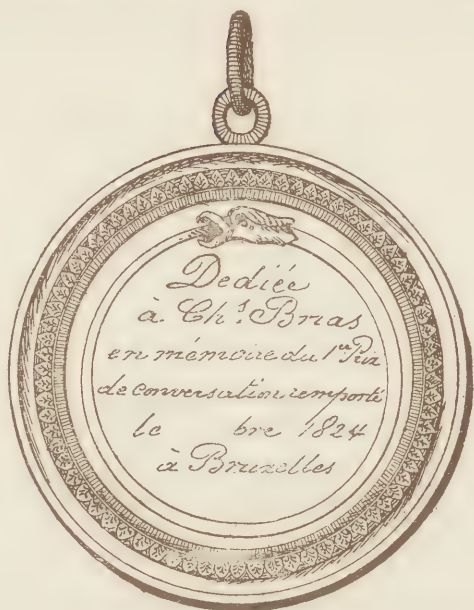 Dediée
à Ch.s Brias
en mémoire du 1er Prix
de conversation remporté
le bre 1824
à Bruxelles